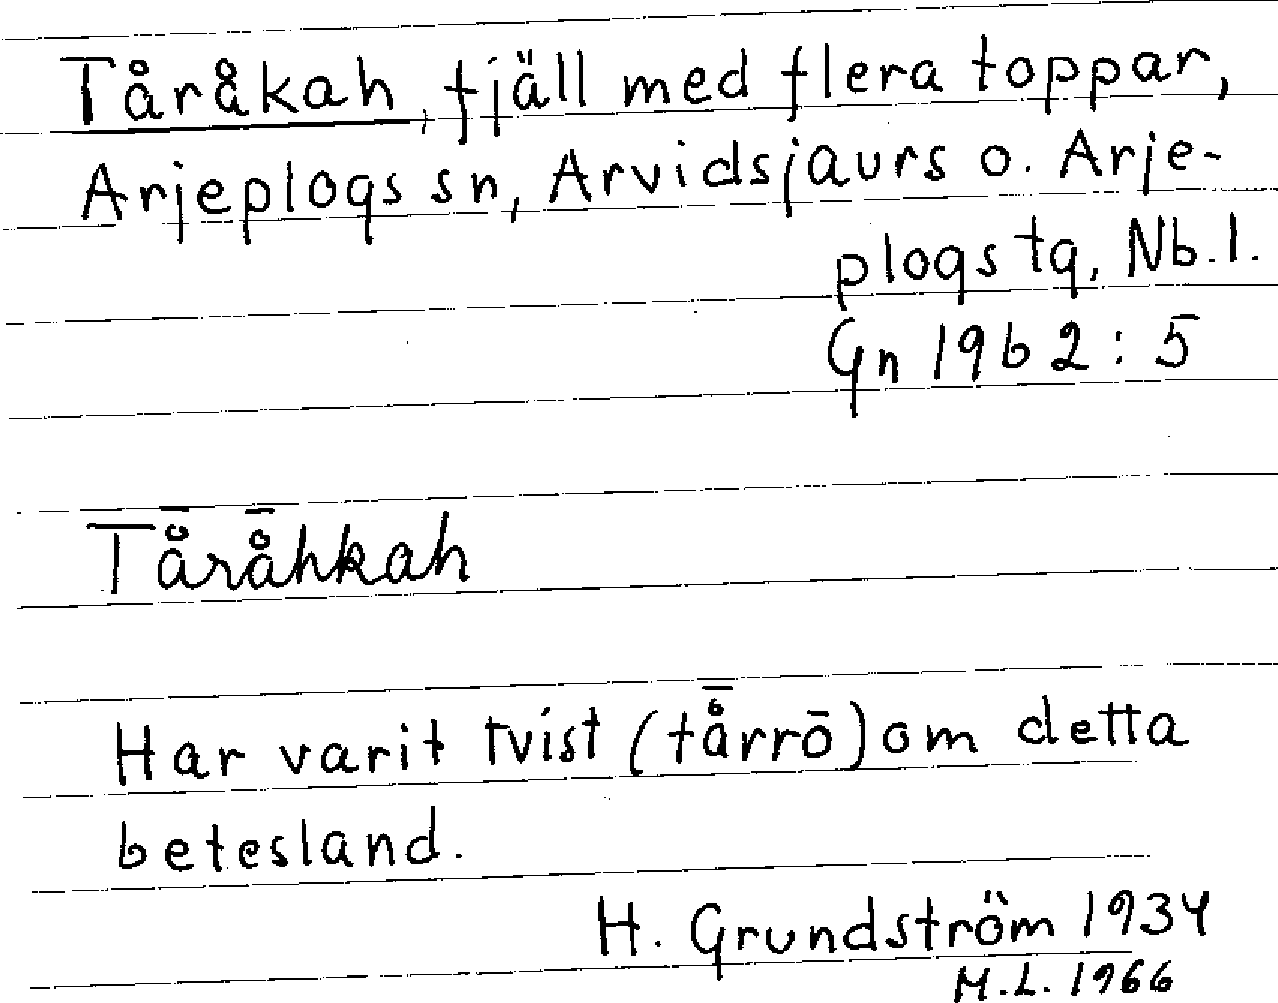 Tåråkah, fjäll med flera toppar,
Arjeplogs sn, Arvidsjaurs o. Arje-
plogs tg, Nb.l.
Gn 1962:5
Tå̄rå̄hkah
Har varit tvist (tå̄rrō) om detta
betesland.
H. Grundström 1934
M.L. 1966